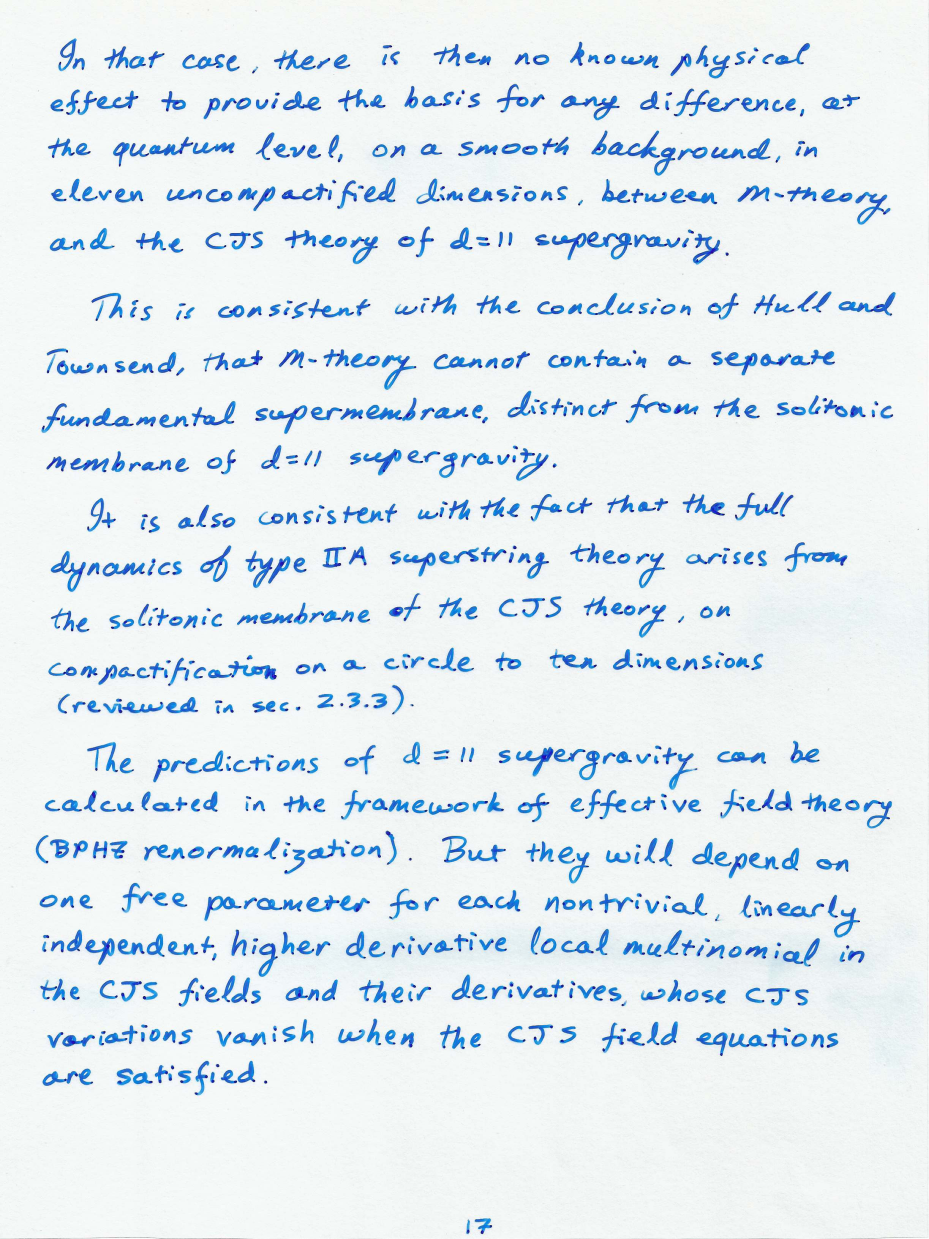 In that case, there is then no known physical
effect to provide the basis for any difference, at
the quantum level, on a smooth background, in
eleven uncompactified dimensions, between M-theory,
and the CJS theory of d=11 supergravity.
This is consistent with the conclusion of Hull and
Townsend, that M-theory cannot contain a separate
fundamental supermembrane, distinct from the solitonic
membrane of d=11 supergravity.
It is also consistent with the fact that the full
dynamics of type IIA superstring theory arises from
the solitonic membrane of the CJS theory, on
compactification on a circle to ten dimensions
(reviewed in sec. 2.3.3).
The predictions of d=11 supergravity can be
calculated in the framework of effective field theory
(BPHZ renormalization). But they will depend on
one free parameter for each nontrivial, linearly
independent, higher derivative local multinomial in
the CJS fields and their derivatives, whose CJS
variations vanish when the CJS field equations
are satisfied.
17